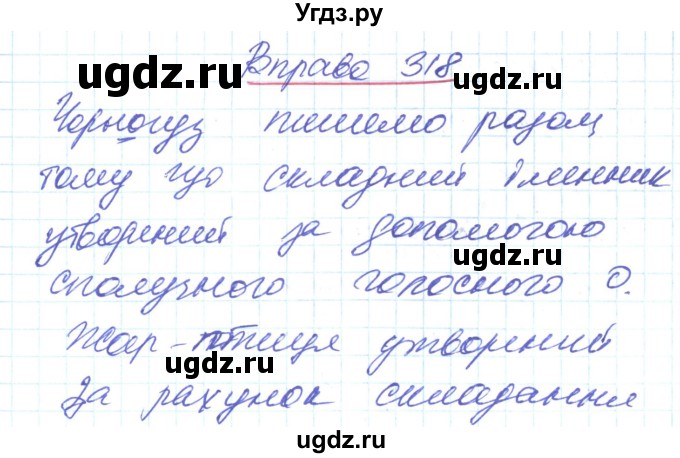 Угдз.ру
Вправа 318
Чорногуз пишемо разом,
тому що складний іменник
утворений за допомогою
сполучного голосного О.
Жар-птиця утворений
За рахунок складання
ugdz.ru
ugdz.ru
ugdz.ru
ugdz.ru
ugdz.ru
ugdz.ru